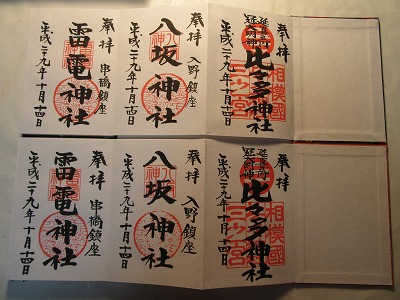 奉拝
比々多神社
延喜式内
相模國
三之宮
平成二十九年十月十四日
奉拝
入野鎮座
八坂神社
平成二十九年十月十四日
奉拝
串橋鎮座
雷電神社
平成二十九年十月十四日
奉拝
比々多神社
延喜式内
相模國
三之宮
平成二十九年十月十四日
奉拝
入野鎮座
八坂神社
平成二十九年十月十四日
奉拝
串橋鎮座
雷電神社
平成二十九年十月十四日